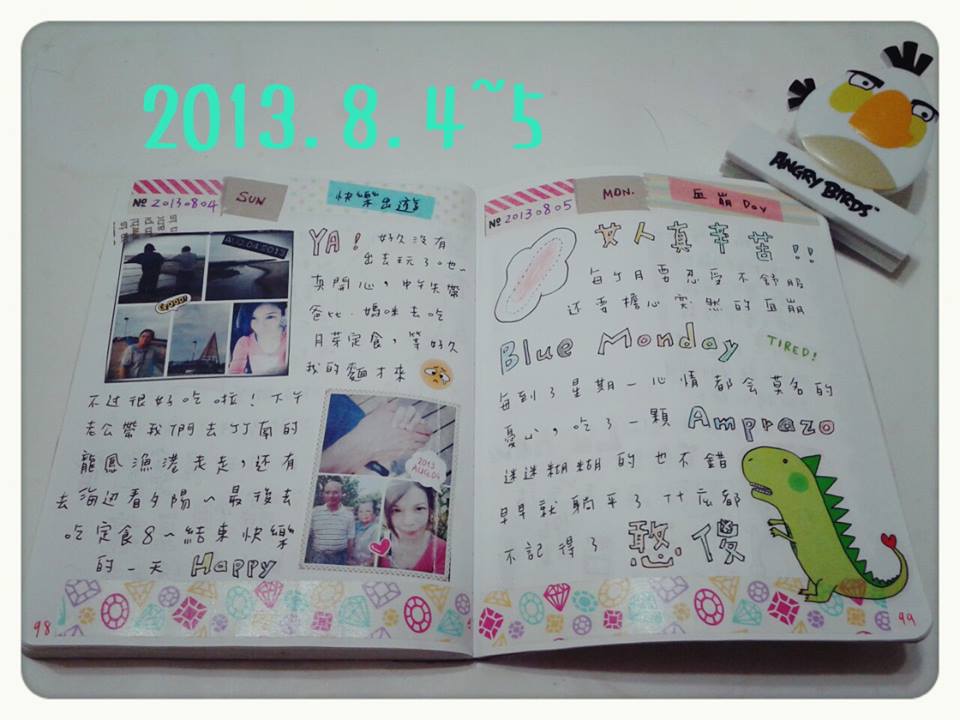 2013.8.4~5
ANGRY BIRDS
№ 20130804
SUN
快樂出遊
YA! 好久沒有
出去玩了吔~
真開心,中午先帶
爸比.媽咪去吃
月芽定食,等好久
我的麵才來
AUG.04.2013
2013
AUG.04
不过很好吃啦!下午
老公帶我們去竹南的
龍鳳漁港走走,还有
去海边看夕陽~最後去
吃定食8~結束快樂
的一天 Happy
98
№ 20130805
MON.
血崩 Day
女人真辛苦!!
每个月要忍受不舒服
还要擔心突然的血崩
Blue Monday TIRED!
每到了星期一心情都会莫名的
憂心,吃了一顆 Amprazo
迷迷糊糊的也不錯
早早就躺平了什広都
不記得了 憨.傻
99